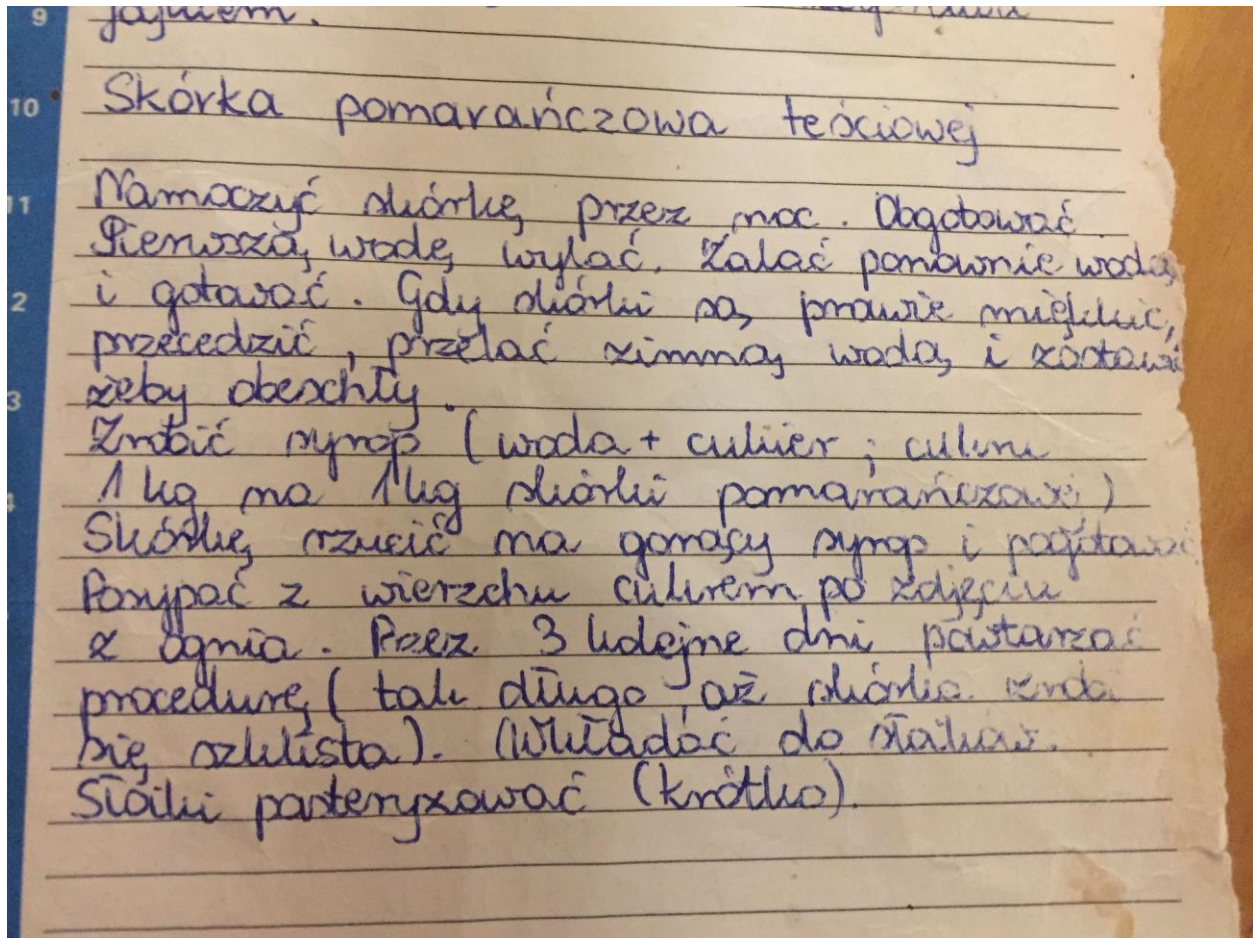 9
jajkiem.
10
Skórka pomarańczowa teściowej
11
Namoczyć skórkę przez noc. Obgotować.
Pierwszą wodę wylać. Zalać ponownie wodą
2
i gotować. Gdy skórki są prawie miękkie,
przecedzić, przelać zimną wodą i zostawić
3
żeby obeschły.
Zrobić syrop (woda + cukier; cukru
1 kg na 1 kg skórki pomarańczowej)
4
Skórkę rzucić na gorący syrop i pogotować
Posypać z wierzchu cukrem po zdjęciu
z ognia. Przez 3 kolejne dni powtarzać
procedurę (tak długo aż skórka zroba
się szklista). Wkładać do słoików.
Słoiki pasteryzować (krótko).